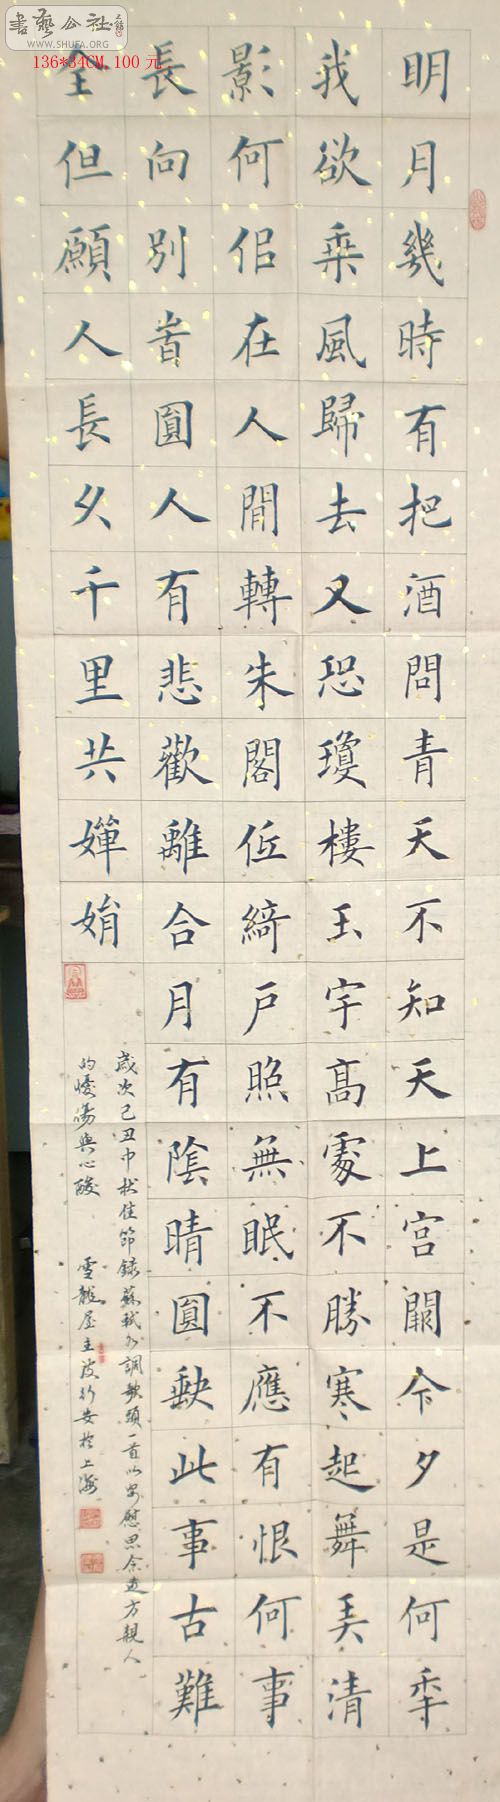 書藝公社
WWW.SHUFA.ORG
136*34CM 100 元
明月幾時有把酒問青天不知天上宮闕今夕是何年
我欲乗風歸去又恐瓊樓玉宇高處不勝寒起舞弄清
影何佀在人間轉朱閣低綺戶照無眠不應有恨何事
長向別旹圓人有悲歡離合月有陰晴圓缺此事古難
全但願人長久千里共嬋娟
歲次己丑中秋佳節錄蘇軾水調歌頭一首以安慰思念遠方親人
的懮傷與心酸 雪龍屋主 於上海